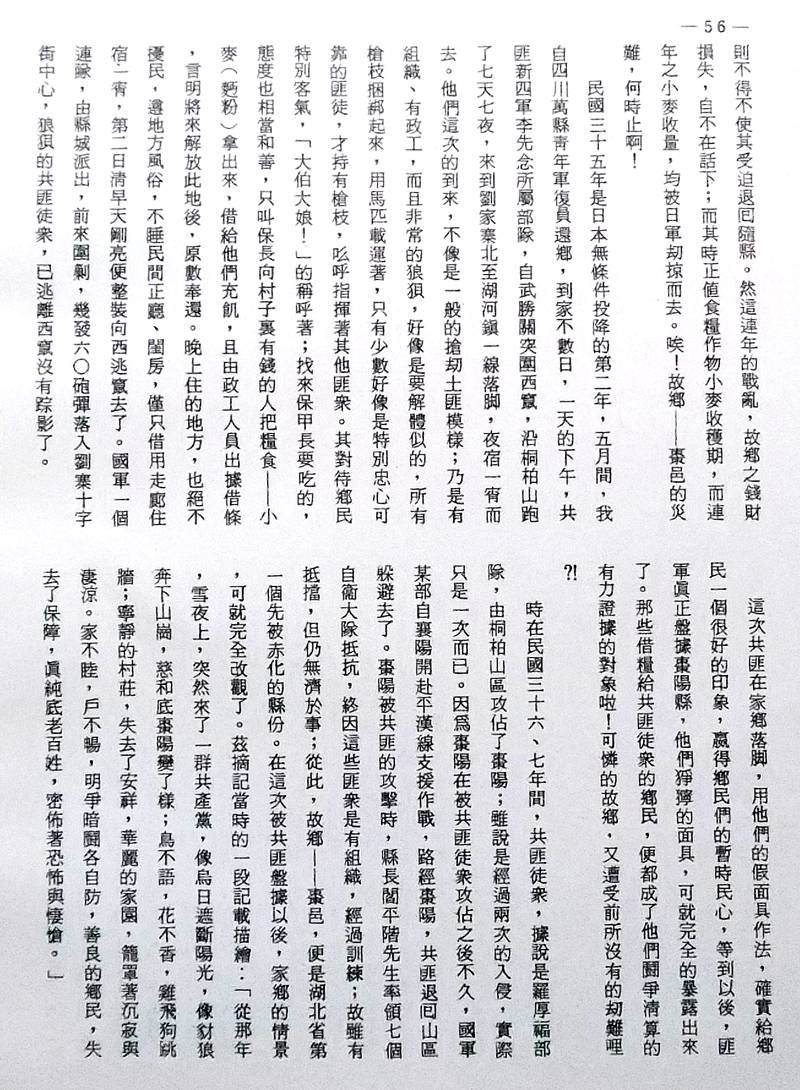 — 56 —
則不得不使其受迫退回隨縣。然這連年的戰亂，故鄉之錢財
損失，自不在話下；而其時正值食糧作物小麥收穫期，而連
年之小麥收量，均被日軍劫掠而去。唉！故鄉——棗邑的災
難，何時止啊！
民國三十五年是日本無條件投降的第二年，五月間，我
自四川萬縣青年軍復員還鄉，到家不數日，一天的下午，共
匪新四軍李先念所屬部隊，自武勝關突圍西竄，沿桐柏山跑
了七天七夜，來到劉家寨北至湖河鎮一線落脚，夜宿一宵而
去。他們這次的到來，不像是一般的搶劫土匪模樣；乃是有
組織、有政工，而且非常的狼狽，好像是要解體似的，所有
槍枝捆綁起來，用馬匹載運著，只有少數好像是特別忠心可
靠的匪徒，才持有槍枝，吆呼指揮著其他匪衆。其對待鄉民
特別客氣，「大伯大娘！」的稱呼著；找來保甲長要吃的，
態度也相當和善，只叫保長向村子裏有錢的人把糧食——小
麥（麵粉）拿出來，借給他們充飢，且由政工人員出據借條
，言明將來解放此地後，原數奉還。晚上住的地方，也絕不
擾民，遵地方風俗，不睡民間正廳、閨房，僅只借用走廊住
宿一宵，第二日清早天剛亮便整裝向西逃竄去了。國軍一個
連隊，由縣城派出，前來圍剿，幾發六〇砲彈落入劉寨十字
街中心，狼狽的共匪徒衆，已逃離西竄沒有踪影了。
這次共匪在家鄉落脚，用他們的假面具作法，確實給鄉
民一個很好的印象，贏得鄉民們的暫時民心，等到以後，匪
軍眞正盤據棗陽縣，他們猙獰的面具，可就完全的暴露出來
了。那些借糧給共匪徒衆的鄉民，便都成了他們鬪爭清算的
有力證據的對象啦！可憐的故鄉，又遭受前所沒有的劫難哩
?!
時在民國三十六、七年間，共匪徒衆，據說是羅厚福部
隊，由桐柏山區攻佔了棗陽；雖說是經過兩次的入侵，實際
只是一次而已。因爲棗陽在被共匪徒衆攻佔之後不久，國軍
某部自襄陽開赴平漢線支援作戰，路經棗陽，共匪退回山區
躲避去了。棗陽被共匪的攻擊時，縣長閻平階先生率領七個
自衞大隊抵抗，終因這些匪衆是有組織，經過訓練；故雖有
抵擋，但仍無濟於事；從此，故鄉——棗邑，便是湖北省第
一個先被赤化的縣份。在這次被共匪盤據以後，家鄉的情景
，可就完全改觀了。茲摘記當時的一段記載描繪：「從那年
，雪夜上，突然來了一群共產黨，像烏日遮斷陽光，像豺狼
奔下山崗，慈和底棗陽變了樣；鳥不語，花不香，雞飛狗跳
牆；寧靜的村莊，失去了安祥，華麗的家園，籠罩著沉寂與
淒涼。家不睦，戶不暢，明爭暗鬪各自防，善良的鄉民，失
去了保障，眞純底老百姓，密佈著恐怖與悽愴。」